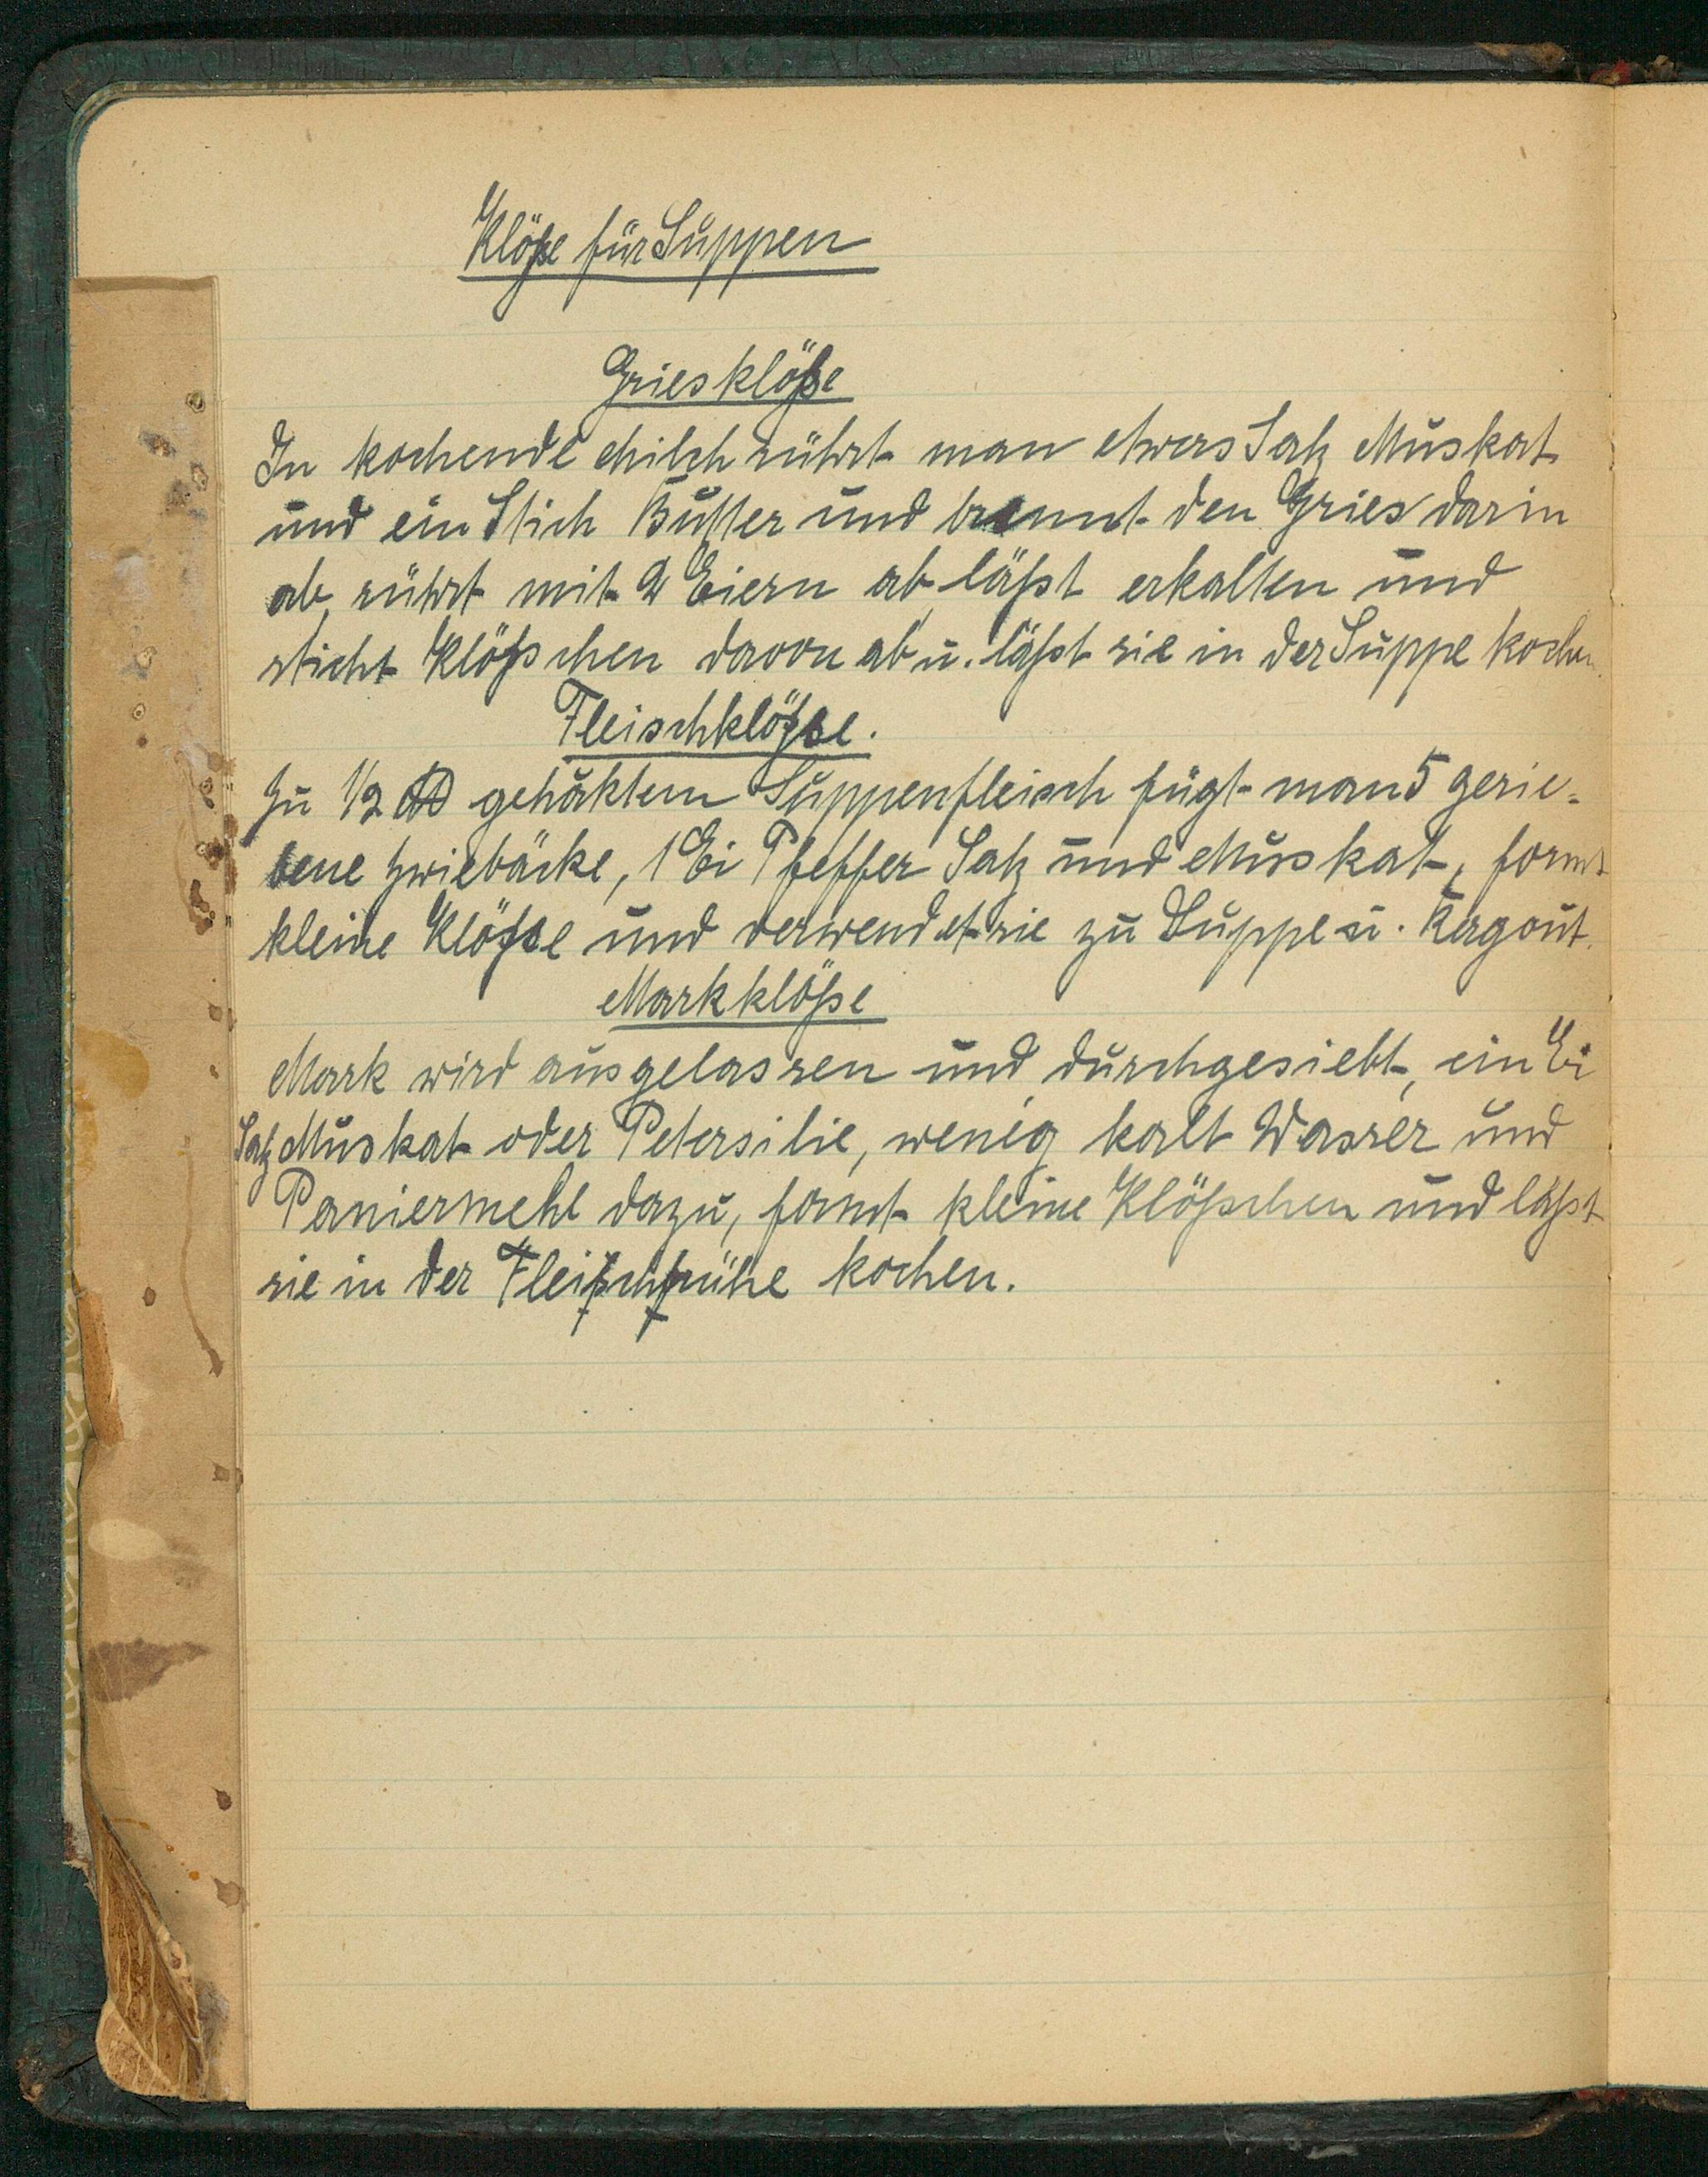 Klöße für Suppen
Griesklöße
In kochende Milch rührt man etwas Salz Muskat
und ein Stich Butter und brennt den Gries darin
ab, rührt mit 2 Eiern ab, läßt erkalten und
sticht Klößchen davon ab u. läßt sie in der Suppe kochen.
Fleischklöße.
Zu 1/2 ℔ gehäktem Suppenfleisch fügt man 5 gerie-
bene Zwiebäcke, 1 Ei Pfeffer Salz und Muskat, formt
kleine Klöße und verwendet sie zu Suppe u. Ragout.
Markklöße
Mark wird ausgelassen und durchgesiebt, ein Ei
Salz Muskat oder Petersilie, wenig kalt Wasser und
Paniermehl dazu, formt kleine Klößchen und läßt
sie in der Fleischbrühe kochen.